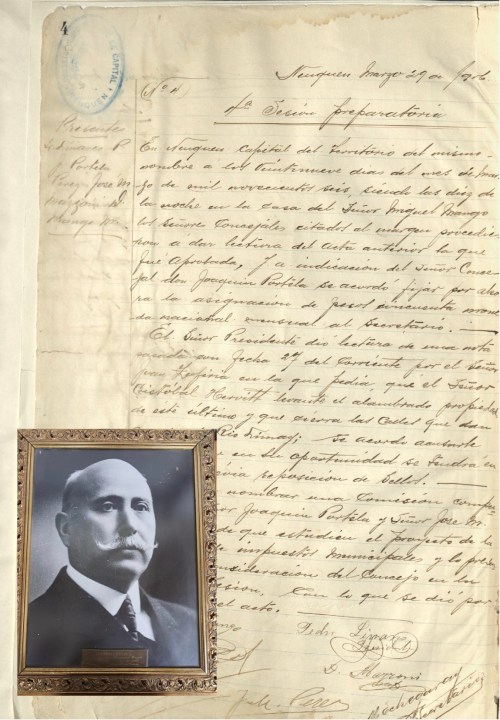 4
CAPITAL
Neuquen Marzo 29 de 1906
(No 4)
4a Sesión preparatoria
Presentes
Linares P
Portela
Perez José M
Mazzoni D
Mango M
En Neuquen Capital del Territorio del mismo
nombre a los veintinueve dias del mes de Mar-
zo de mil novecientos seis, siendo las diez de
la noche en la casa del Señor Miguel Mango
los Señores Concejales citados al margen procedie
ron a dar lectura del acta anterior la que
fué aprobada, y a indicación del Señor Conce-
jal don Joaquin Portela se acordó fijar por aho
ra la asignación de pesos cincuenta mone
da nacional mensual al Secretario.
El Señor Presidente dió lectura de una nota
con fecha 27 del corriente por el señor
Juan en la que pedia, que el Señor
Cristóbal levante el alambrado propiedad
de este ultimo y que cierra las Calles que dan
Rio Limay; se acordo
en su oportunidad se tendra en
previa reposicion de sellos.
nombrar una Comisión compu
Joaquin Portela y Señor José M.
de que estudien el proyecto de la
impuestos Municipales y lo pres
consideracion del Concejo en la
sesion, Con lo que se dió por
el acto.
Pedro Linares
D. Mazzoni
J. M. Perez
Secretario